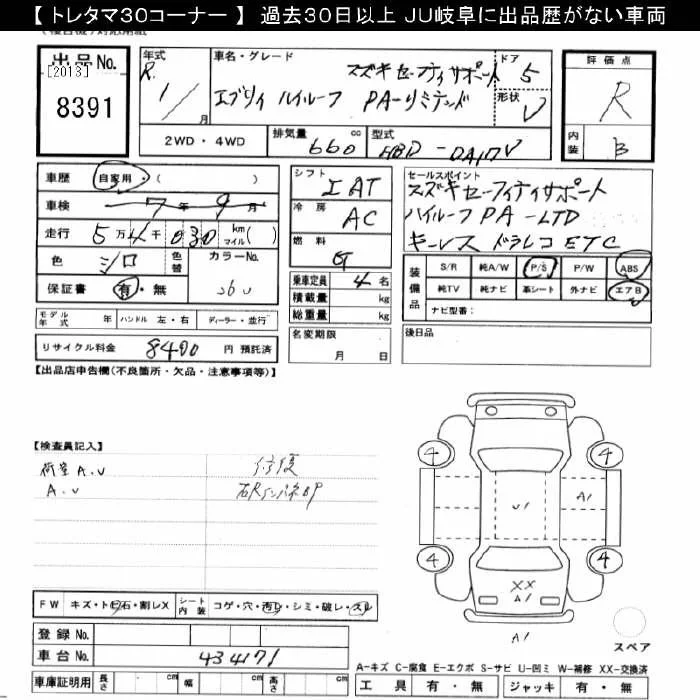 【 トレタマ30コーナー 】 過去30日以上 JU岐阜に出品歴がない車両
出品No. [2013] 8391
年式 R. 1/ 月
車名・グレード スズキセーフティサポート
エブリイ ハイルーフ PA-リミテッド
ドア 5
形状 V
評価点 R
内装 B
2WD・4WD 排気量 660 cc 型式 HBD-DA17V
車歴 自家用 ( )
車検 7年 9月
走行 5万4千030 km マイル ( )
色 シロ 色替 カラーNo. 26U
保証書 有・無
シフト IAT
冷房 AC
燃料 G
乗車定員 4 名
積載量 kg
総重量 kg
セールスポイント
スズキセーフティサポート
ハイルーフ PA-LTD
キーレス ドラレコ ETC
装備品 S/R 純A/W P/S P/W ABS
純TV 純ナビ 革シート 外ナビ エアB
ナビ型番:
モデル年式 年 ハンドル 左・右 ディーラー・並行
リサイクル料金 8400 円 預託済
名変期限 月 日
後日品
【出品店申告欄(不良箇所・欠品・注意事項等)】
【検査員記入】
荷室A.U 修復
A.U
4 4
U1 A1
4 4
XX
A1
A1
スペア
FW キズ・トビ石・割レX シート内装 コゲ・穴・汚レ・シミ・破レ・スレ
登録No.
車台No. 434171
A-キズ C-腐食 E-エクボ S-サビ U-凹ミ W-補修 XX-交換済
車庫証明用 長さ cm 幅 cm 高さ cm 工具 有・無 ジャッキ 有・無